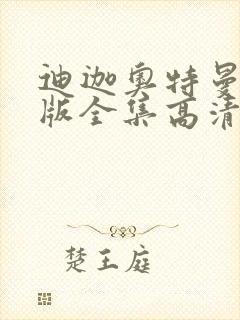 迪迦奥特曼
版全集高清
楚王庭